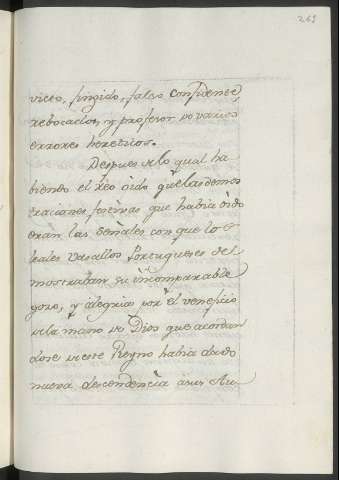 269
victo, fingido, falso, Confidente,
rebocado, y profesor de varios
errores hereticos.
Despues de lo qual ha
biendo el Reo oido que las demos
traciones festivas que habia oido
eran las señales con que lo s
leales Vasallos Portugueses de
mostraban su incomparable
gozo, y alegria por el veneficio
de la mano de Dios que acordan
dose de este Reyno habia dado
nueva descendencia á sus Au-